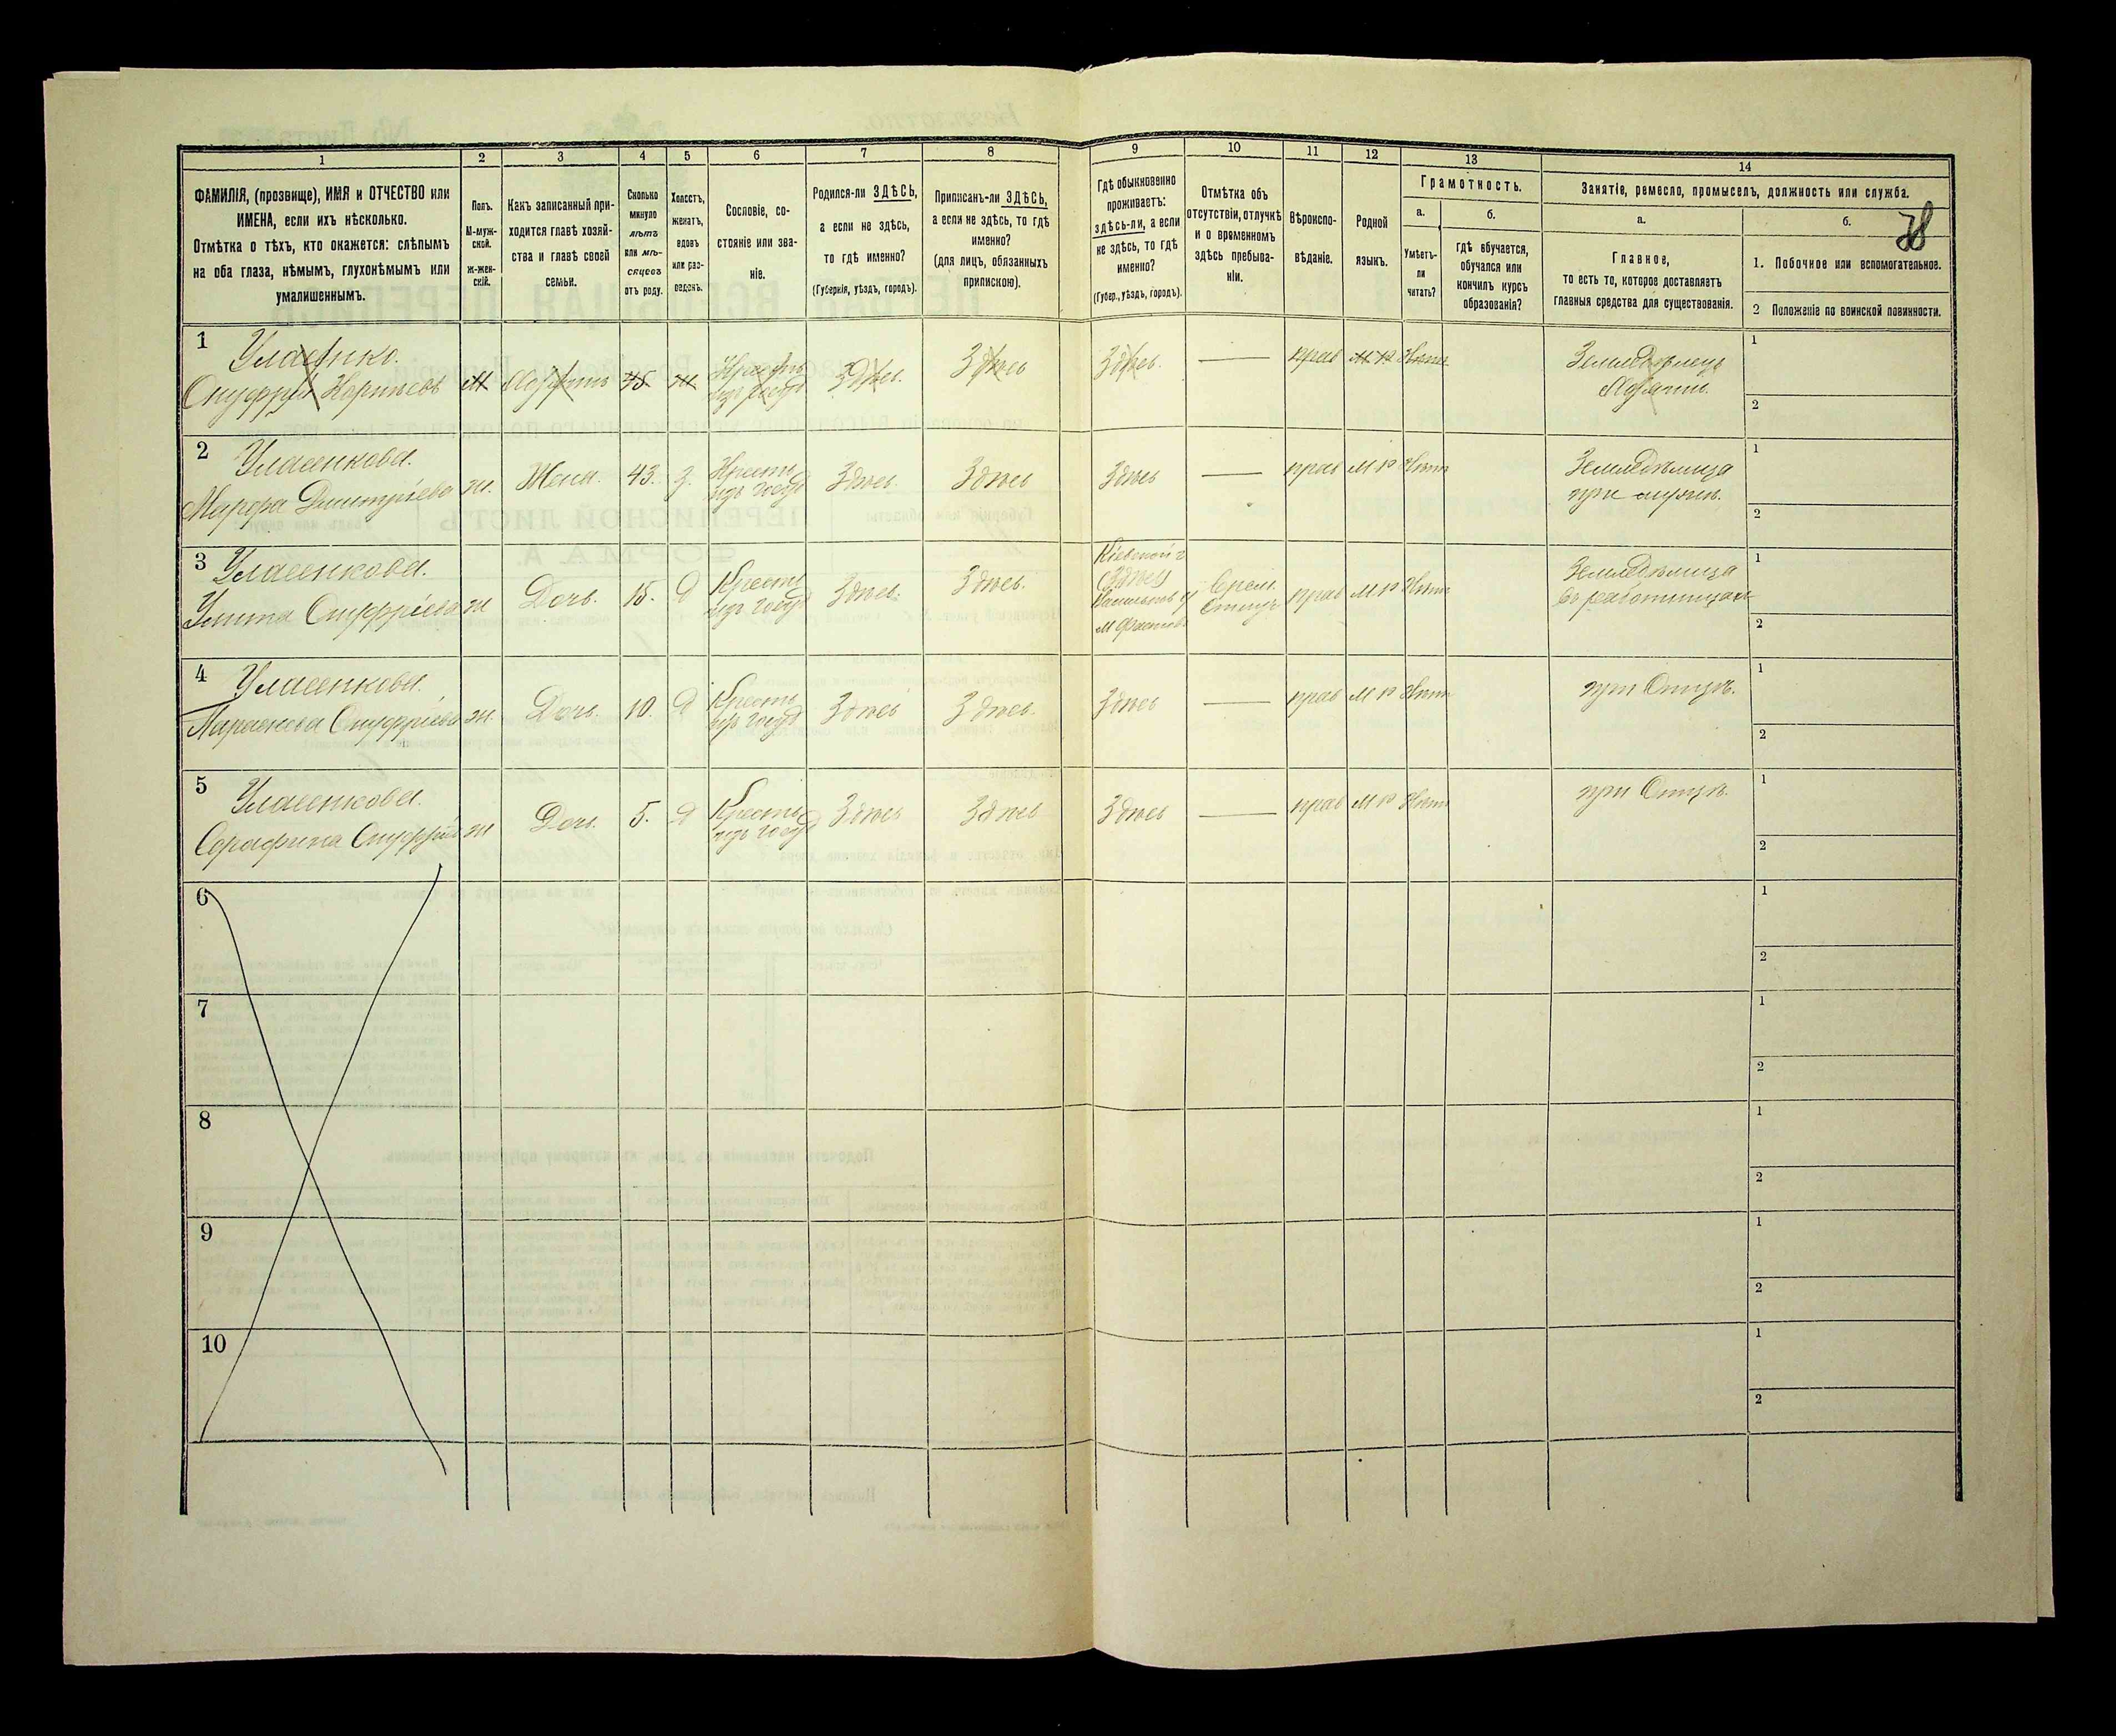 1 2 3 4 5 6 7 8 9 10 11 12 13 14
ФАМИЛІЯ, (прозвище), ИМЯ и ОТЧЕСТВО или
ИМЕНА, если ихъ нѣсколько.
Отмѣтка о тѣхъ, кто окажется: слѣпымъ
на оба глаза, нѣмымъ, глухонѣмымъ или
умалишеннымъ.
Полъ.
М-муж-
ской.
Ж-жен-
скій.
Какъ записанный при-
ходится главѣ хозяй-
ства и главѣ своей
семьи.
Сколько
минуло
лѣтъ
или мѣ-
сяцевъ
отъ роду.
Холостъ,
женатъ,
вдовъ
или раз-
веденъ.
Сословіе, со-
стояніе или зва-
ніе.
Родился-ли ЗДѢСЬ,
а если не здѣсь,
то гдѣ именно?
(Губернія, уѣздъ, городъ).
Приписанъ-ли ЗДѢСЬ,
а если не здѣсь, то гдѣ
именно?
(для лицъ, обязанныхъ
припискою).
Гдѣ обыкновенно
проживаетъ:
здѣсь-ли, а если
не здѣсь, то гдѣ
именно?
(Губер., уѣздъ, городъ).
Отмѣтка объ
отсутствіи, отлучкѣ
и о временномъ
здѣсь пребыва-
ніи.
Вѣроиспо-
вѣданіе.
Родной
языкъ.
Грамотность.
а.
Умѣетъ-
ли
читать?
б.
Гдѣ обучается,
обучался или
кончилъ курсъ
образованія?
Занятіе, ремесло, промыселъ, должность или служба.
а.
Главное,
то есть то, которое доставляетъ
главныя средства для существованія.
б.
38
1. Побочное или вспомогательное.
2 Положеніе по воинской повинности.
1
Уласенко.
Онуфрій
М
45
Здѣсь.
Здѣсь
Здѣсь.
прав
М Р
Нѣтъ
Земледѣлецъ
1
2
2
Уласенкова.
Марфа Дмитріева
ж.
Жена.
43.
З.
Крестн
изъ госуд
Здѣсь.
Здѣсь
Здѣсь
прав
М Р
Нѣтъ
Земледѣлица
при мужѣ.
1
2
3
Уласенкова.
Улита Онуфріева
ж
Дочь.
15.
Д
Крестн
изъ госуд
Здѣсь.
Здѣсь.
Кіевской г
Здѣсь
м Фастовъ
Врем.
прав
М Р
Нѣтъ
Земледѣлица
въ работницахъ
1
2
4
Уласенкова.
Параскева Онуфріева
ж.
Дочь.
10.
Д
Крестн
изъ госуд
Здѣсь
Здѣсь.
Здѣсь
прав
М Р
Нѣтъ
при Отцѣ.
1
2
5
Уласенкова.
Серафина
ж
Дочь.
5.
Д
Крестн
изъ госуд
Здѣсь
Здѣсь
Здѣсь
прав
М Р
Нѣтъ
при Отцѣ.
1
2
6
1
2
7
1
2
8
1
2
9
1
2
10
1
2